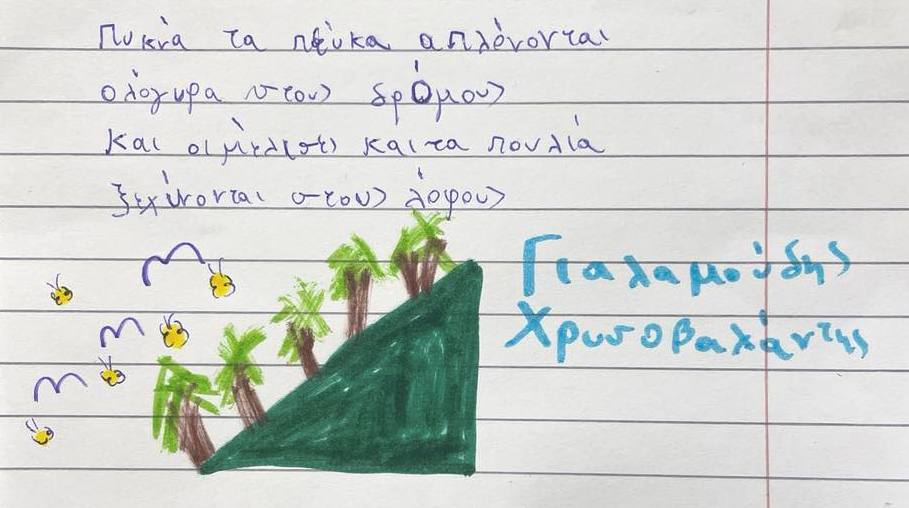 Πυκνά τα πεύκα απλώνονται
ολόγυρα στους δρόμους
και οι μέλισσες και τα πουλιά
ξεχύνονται στους λόφους
Γιαλαμούδης
Χρυσοβαλάντης